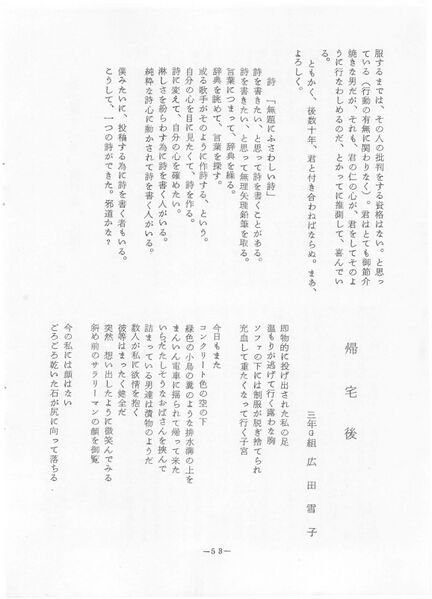 服するまでは、その人の批判をする資格はない。と思っ
ている（行動の有無に関わりなく）。君はとても御節介
焼きな男だが、それも、君の仁の心が、君をしてそのよ
うに行なわしめるのだ、とかってに推測して、喜んでい
る。
ともかく、後数十年、君と付き合わねばならぬ。まあ、
よろしく。
詩　「無題にふさわしい詩」
詩を書きたい、と思って詩を書くことがある。
詩を書きたい、と思って無理矢理鉛筆を取る。
言葉につまって、辞典を繰る。
辞典を眺めて、言葉を探す。
或る歌手がそのように作詩する、という。
自分の心を目に見たくて、詩を作る。
詩に変えて、自分の心を確めたい。
淋しさを紛らわす為に詩を書く人がいる。
純粋な詩心に動かされて詩を書く人がいる。
僕みたいに、投稿する為に詩を書く者もいる。
こうして、一つの詩ができた。邪道かな？
帰宅後
三年G組　広田雪子
即物的に投げ出された私の足
温もりが逃げて行く露わな胸
ソファの下には制服が脱ぎ捨てられ
充血して重たくなって行く子宮
今日もまた
コンクリート色の空の下
緑色の小鳥の糞のような排水溝の上を
まんいん電車に揺られて帰って来た
いらだたしそうなおばさんを挟んで
詰まっている男達は漬物のようだ
数人が私に欲情を抱く
彼等はまったく健全だ
突然　想い出したように微笑んでみる
斜め前のサラリーマンの顔を御覧
今の私には顔はない
ごろごろ乾いた石が尻に向って落ちる
—53—